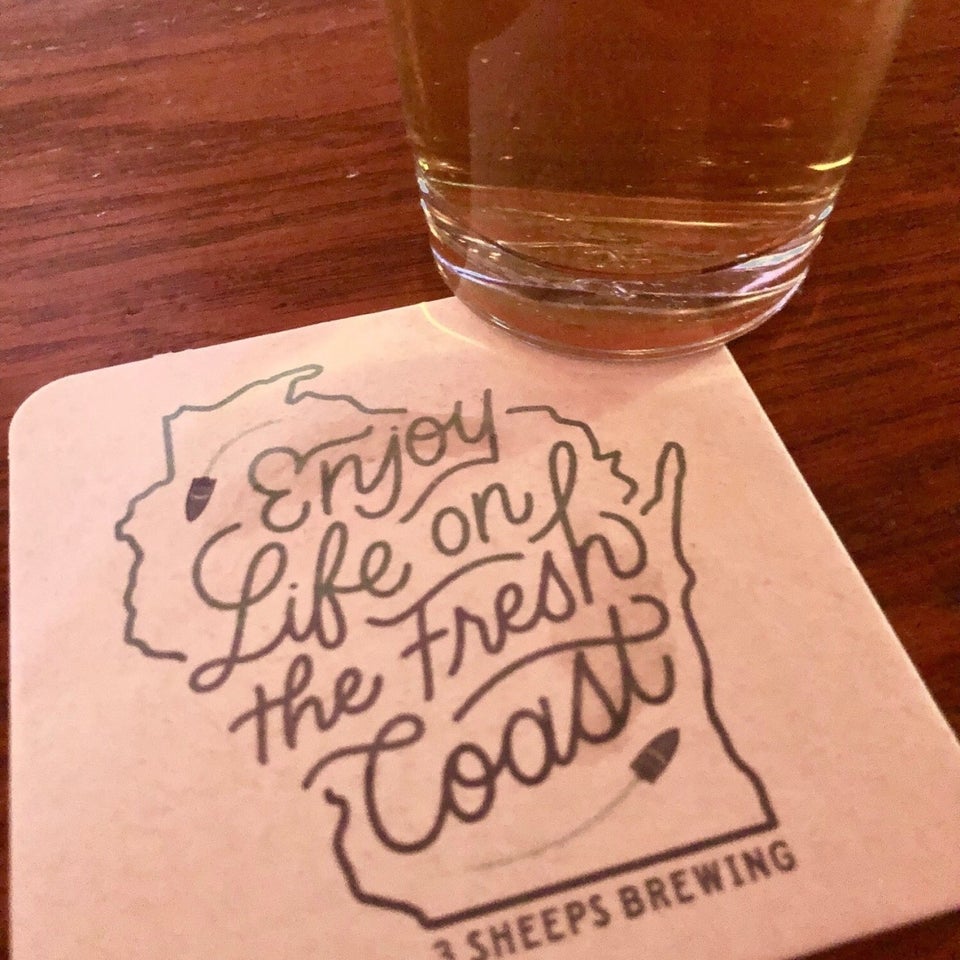 Enjoy
Life on
the Fresh
Coast
3 SHEEPS BREWING